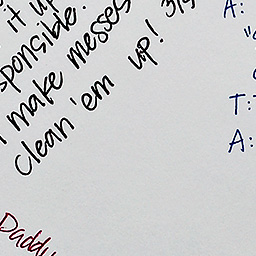 it up
sponsible.
make messes
clean 'em up! 3/5
Daddy
A:
T:
A: